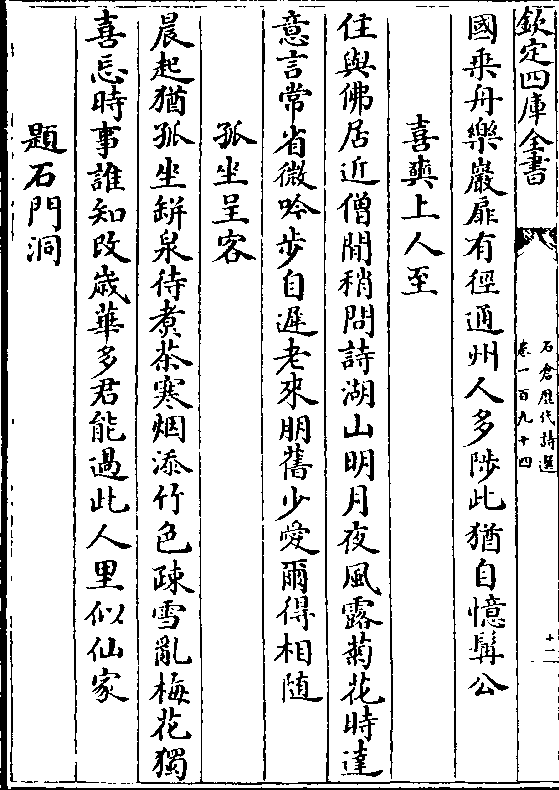 欽定四庫全書
石倉歷代詩選
卷一百九十四
十二
國乗舟樂巖扉有徑通州人多陟此猶自憶髯公
喜奭上人至
住與佛居近僧閒稍問詩湖山明月夜風露菊花時達
意言常省微吟步自遲老來朋舊少愛爾得相随
孤坐呈客
晨起猶孤坐缾泉待煮茶寒烟添竹色疎雪亂梅花獨
喜忘時事誰知改歲華多君能過此人里似仙家
題石門洞